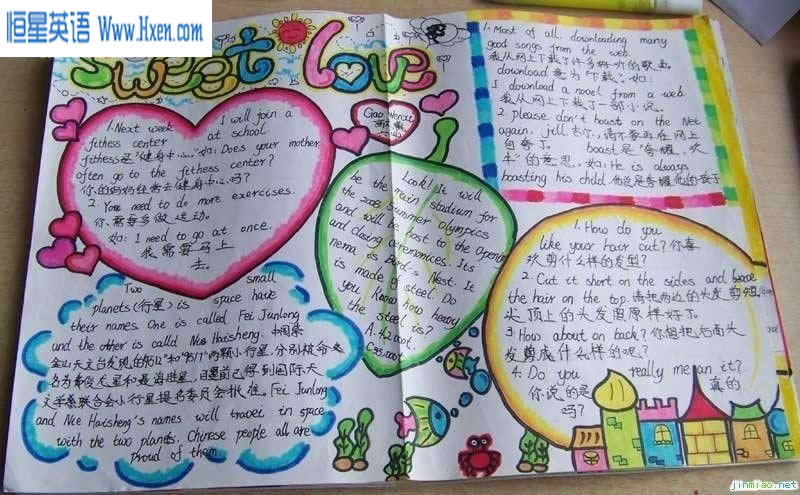 恒星英语
www.Hxen.com
sweet love
1.Next week I will join a
fitness center at school.
fithess是"健身中心"如: Does your mother
often go to the fithess center?
你的妈妈经常去健身中心吗?
2. You need to do more exercises.
你需要多做运动.
如: I need to go at once.
我需要马上
去.
Gao Wenxie
Look! It will
be the main stadium for
the 2008 Summer Olympics
and will be host to the Opening
and closing ceremonices. Its
nema is Bird's Nest. It
is made of steel. Do
you know how heavy
the steel is?
A.42000t.
C38000t.
1. Most of all. downloading many
good songs from the web.
我从网上下载了许多好听的歌曲.
download 意为"下载".如:
I download a novel from a web.
我从网上下载了一部小说.
2. please don't boast on the Net
again, jill 吉尔,请不要再在网上
自夸了. boast是"夸耀,吹
牛"的意思,如:He is always
boasting his child.他总是夸耀他的孩子
Two small
planets(行星) in space have
their names One is called Fei Junlong
and the other is called Nie Haisheng.中国紫
金山天文台发现的"9512"和"9517"两颗小行星,分别被命
名为费俊龙星和聂海胜星,目前已得到国际天
文学家联合会小行星提名委员会批准.Fei Junlong
and Nie Haisheng's names will travel in space
with the two planets. Chinese people all are
proud of them
1. How do you
like your hair cut?你喜
欢剪什么样的发型?
2. Cut it short on the sides and leave
the hair on the top.请把两边的头发剪短
头顶上的头发照原样好了.
3 How about on back?你想把后面头
发剪成什么样的呢?
4. Do you really mean it?
你说的是 真的
吗?
jinmiao.net